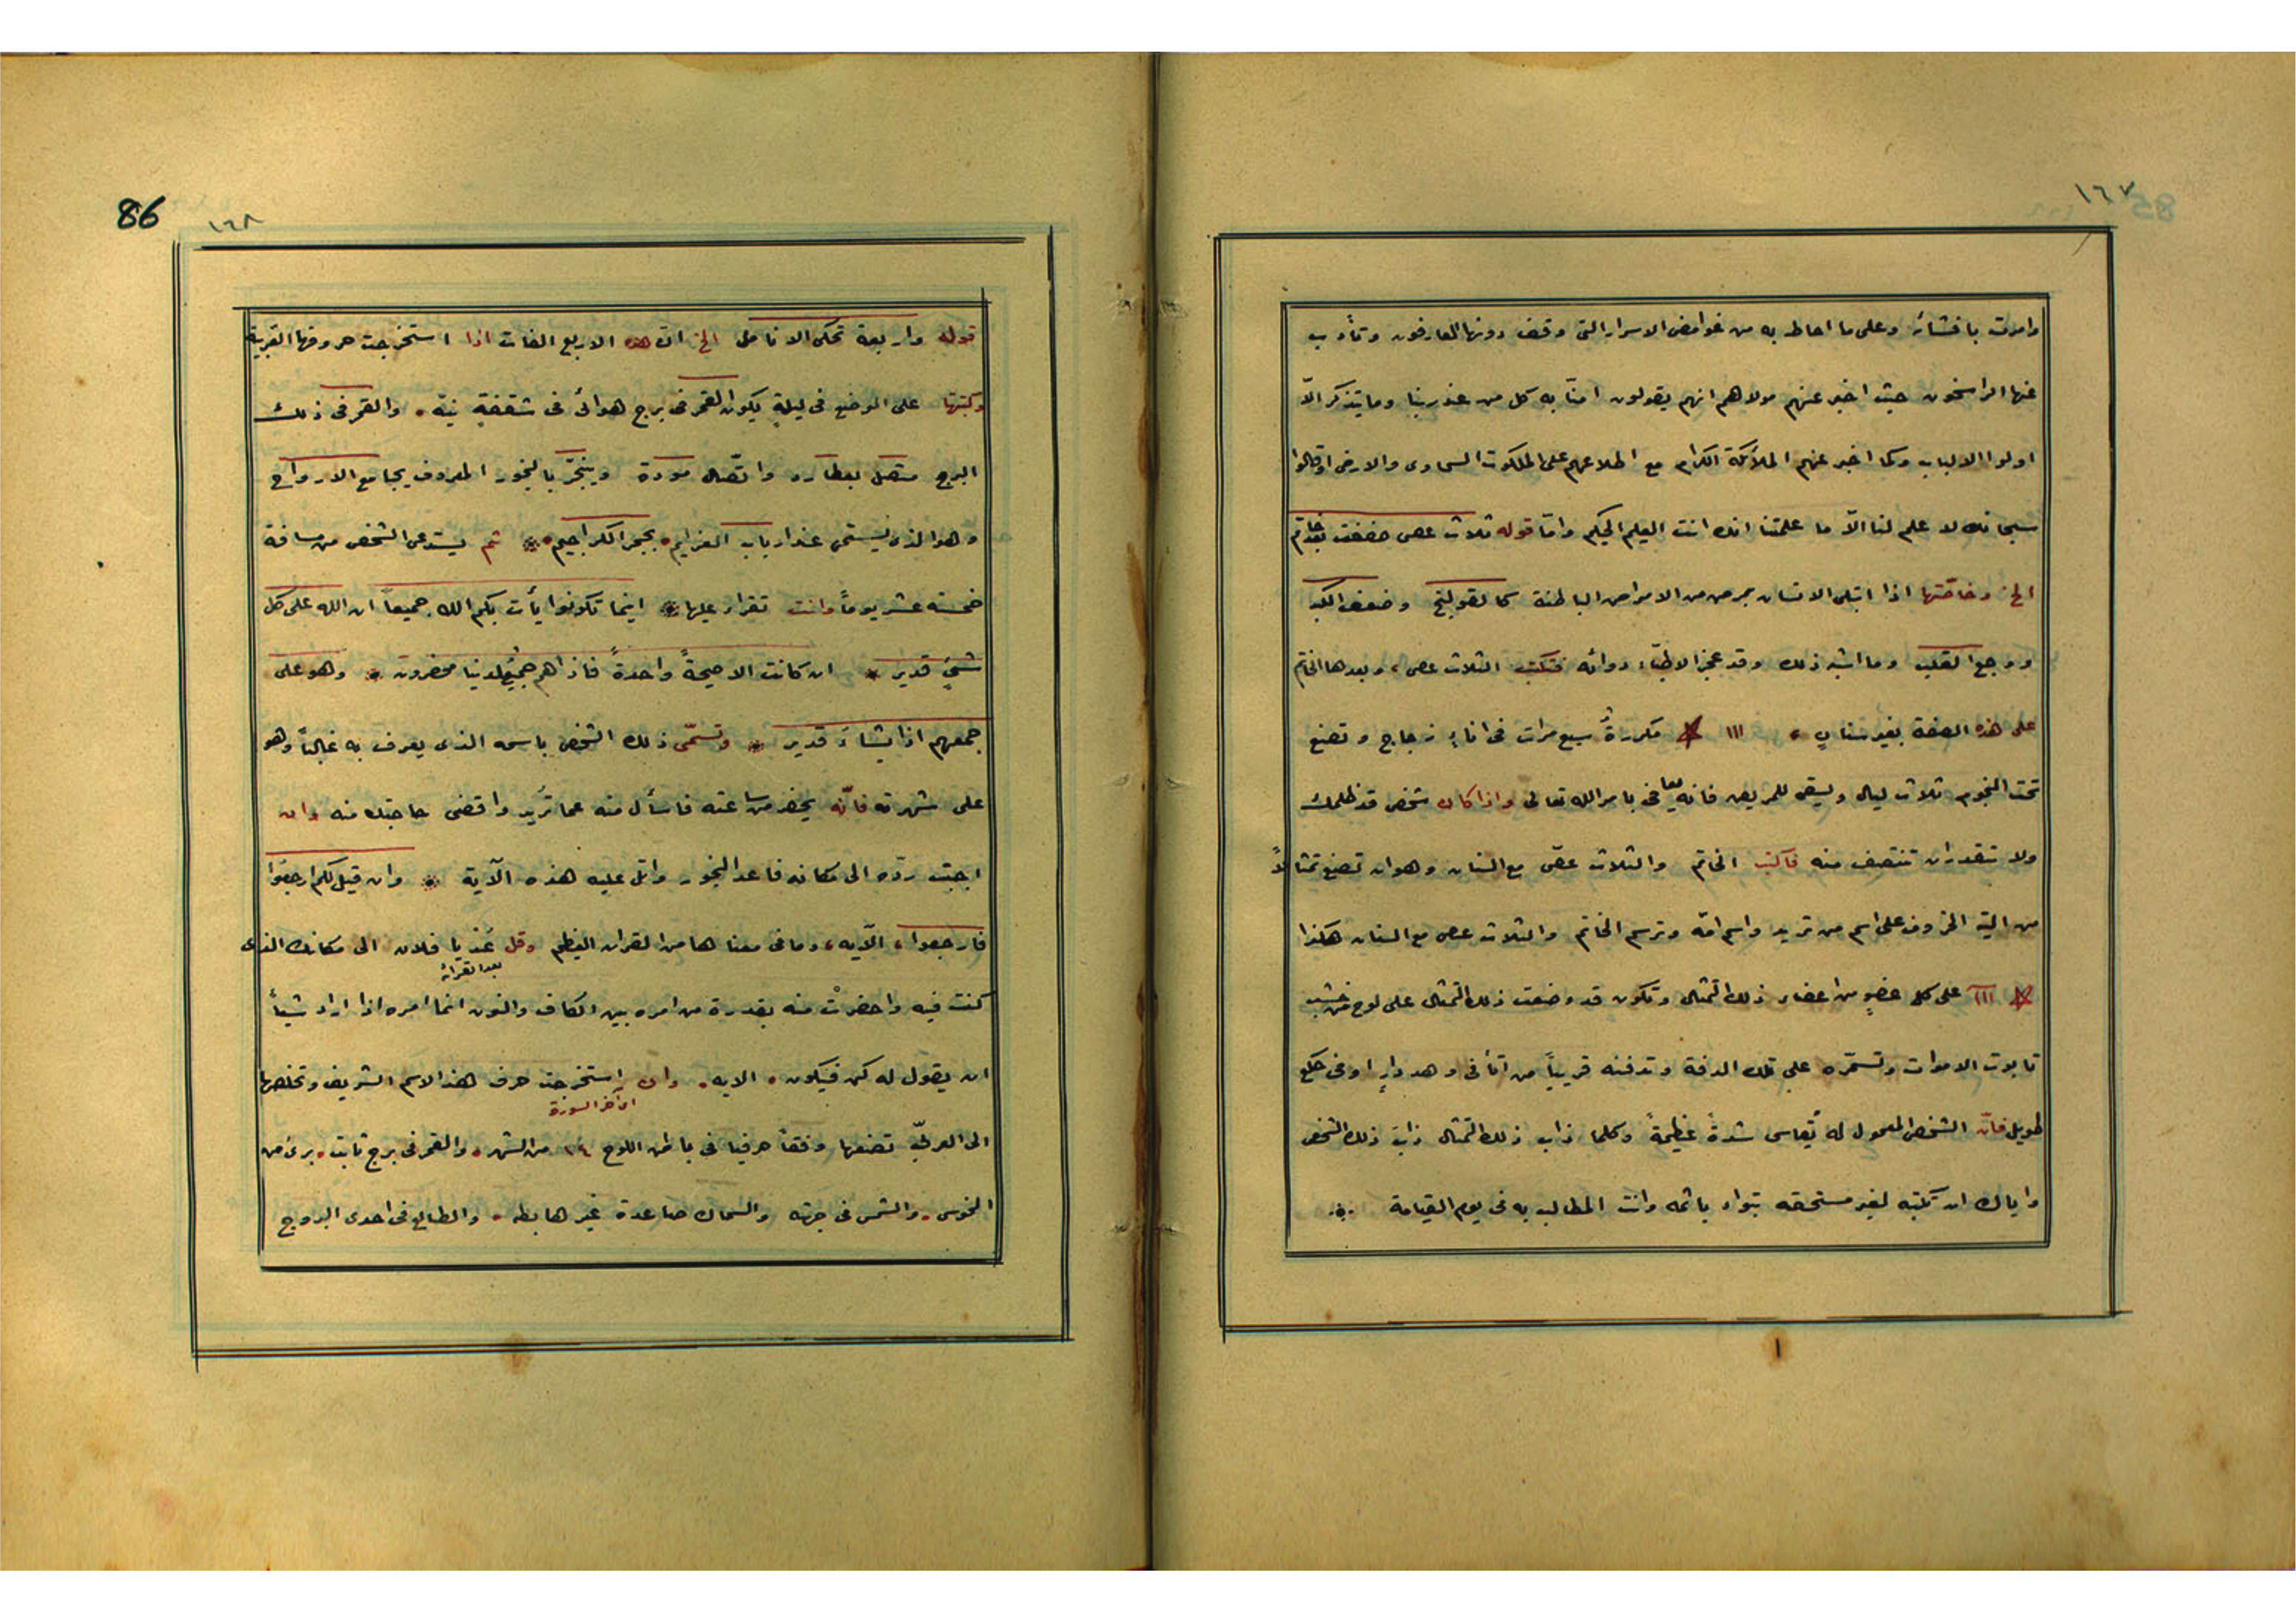 ١٦٧
وامرت بافشائه وعلى ما احاط به من غوامض الاسرار التى وقف دونها العارفون وتأدب
عنها الراسخون حيث اخبر عنهم مولاهم انهم يقولون امنّا به كل من عند ربنا وما يتذكر الّا
اولوا الالباب وكما اخبر عنهم الملائكة الكرام مع اطلاعهم على الملكوت السماوى والارضى اذ قالوا
سبحانك لا علم لنا الّا ما علمتنا انك انت العليم الحكيم وامّا قوله ثلاث عصى صففت بعد خاتم
الخ وخاصّتها اذا ابتلى الانسان بمرض من الامراض الباطنة كالقولنج وضعف الكبد
ووجع القلب وما اشبه ذلك وقد عجز الاطبّاء دوائه فتكتب الثلاث عصى، وبعدها الخاتم
على هذه الصفة بغير سنان ، ١١١ ✡ مكررةً سبع مرات فى اناءٍ زجاج وتضع
تحت النجوم ثلاث ليال ويسقى للمريض فانه يعافى بامر الله تعالى واذا كان شخص قد ظلمك
ولا تقدر ان تنتصف منه فاكتب الخاتم والثلاث عصّى مع السنان وهو ان تصنع تمثالاً
من الخروف على اسم من تريد واسم امّه وترسم الخاتم والثلاث عصى مع السنان هكذا
✡ ١١١ على كل عضوٍ من اعضاء ذلك التمثال وتكون قد وضعت ذلك التمثال على لوح من خشب
تابوت الاموات وتسمّره على تلك الدفة وتدفنه قريباً من اتافى وهد دارٍ او فى
طويل فانّ الشخص المعمول له يُقاسى شدةً عظيمةً وكلما ذاب ذلك التمثال ذابَ ذلك الشخص
واياك ان تكتبه لغير مستحقه تبواء باثمه وانت المطالب به فى يوم القيامة
١
86
١٦٨
قوله واربعة تحكى الانامل الخ انّ هذه الاربع الفات اذا استخرجت حروفها القريبة
وكتبتها على الموضع فى ليلةٍ يكون القمر فى برج هوائى فى شقفةٍ نيّه . والقمر فى ذلك
البرج متصل بعطارد واتّصال مودة ويبخّر بالبخور المعروف بجامع الارواح
وهو الذى يستمى عند ارباب العزايم ببجر الكراجيم ثم يستدعى الشخص من مسافة
خمسته عشر يوماً وانت تقراء عليها اينما تكونوا يأت بكم الله جميعاً ان الله على كل
شئٍ قدير ان كانت الا صيحةً واحدةً فاذاهم جميعٌ لدنيا محضرون وهو على
جمعهم اذا يشاءَ قدير وتسمّى ذلك الشخص باسمه الذى يعرف به غالباً وهو
على شهرته فانّه يحضر من ساعته فاسأل منه عما تُريد واقضى حاجتك منه وان
احببت ردّه الى مكانه فاعد البخور واتل عليه هذه الآية وان قيل لكم ارجعوا
فارجعوا، الآيه، وما فى معناها من القران العظيم وقل عُد يا فلان الى مكانك الذى
بعد القرائة
كنت فيه واحضرتْ منه بقدرة من امره بين الكاف والنون انما امره اذا اراد شيأً
ان يقول له كن فيكون . الايه . وان استخرجت حرف هذ الاسم الشريف وتخلصها
اى اخر السورة
الى العربيّه تضعها وفقاً حرفيا فى باطن اللوح ١٤ من الشهر . والقمر فى برج ثابت . برئ من
النحوس . والشمس فى جهته والسماك صاعدة غير هابطه . والطالع فى احدى البروج